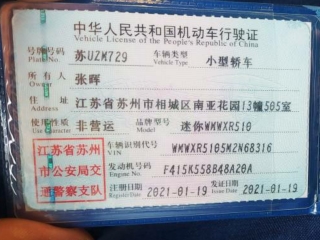 中华人民共和国机动车行驶证
Vehicle License of the People's Republic of China
号牌号码 Plate No. 苏UZM729 车辆类型 Vehicle Type 小型轿车
所有人 Owner 张晖
住址 Address 江苏省苏州市相城区南亚花园13幢505室
使用性质 Use Character 非营运 品牌型号 Model 迷你WMWXR510
江苏省苏州市公安局交通警察支队
车辆识别代号 VIN WMWXR5105M2N68316
发动机号码 Engine No. F415K558B48A20A
注册日期 Register Date 2021-01-19 发证日期 Issue Date 2021-01-19